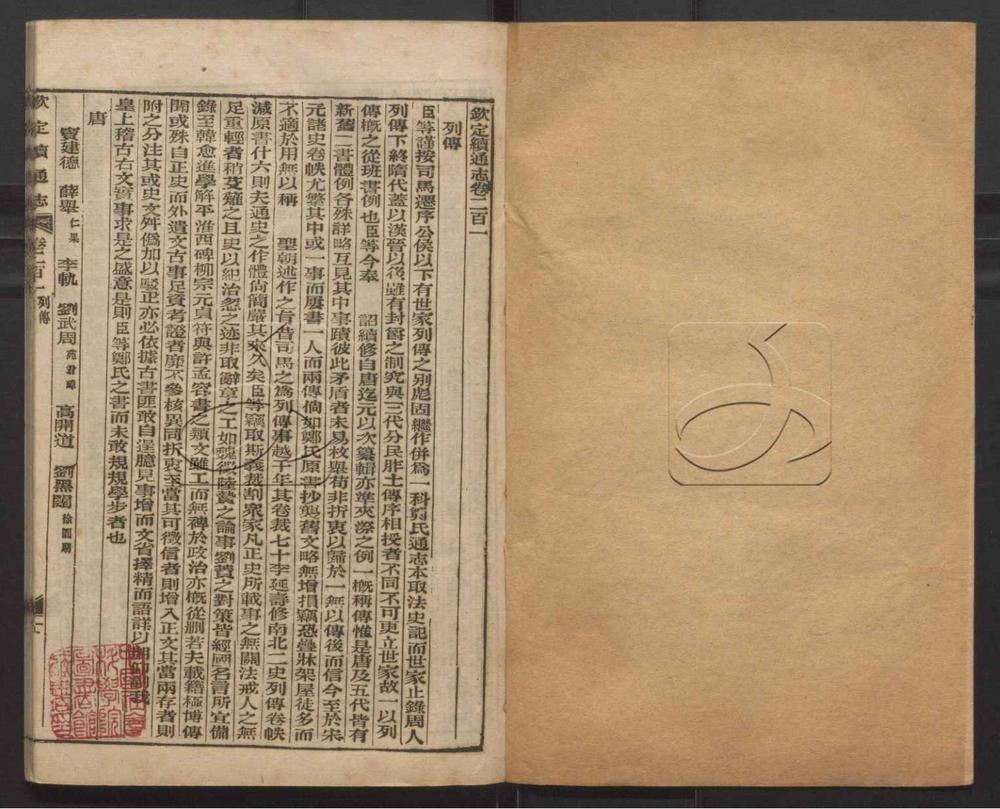 欽定續通志卷二百一
列傳
臣等謹按司馬遷序公侯以下有世家列傳之别彪固繼作併為一科鄭氏通志本取法史記而世家止錄周人
列傳下終隋代蓋以漢晉以後雖有封爵之制究與三代分民胙土傳序相授者不同不可更立世家故一以列
傳概之從班書例也臣等今奉 詔續修自唐迄元以次纂輯亦準夾漈之例一概稱傳惟是唐及五代皆有
新舊二書體例各殊詳略互見其中事蹟彼此矛盾者未易枚舉苟非折衷以歸於一無以傳後而信今至於宋
元諸史卷帙尤繁其中或一事而屢書一人而兩傳倘如鄭氏原書抄襲舊文略無增損竊恐疊牀架屋徒多而
不適於用無以稱 聖朝述作之旨昔司馬之為列傳事越千年其卷裁七十李延壽修南北二史列傳卷帙
減原書什六則夫通史之作體尚簡嚴其來久矣臣等竊取斯義裁割眾家凡正史所載事之無關法戒人之無
足重輕者稍芟薙之且史以紀治忽之迹非取辭章之工如魏徵陸贄之論事劉蕡之對策皆經國名言所宜備
錄至韓愈進學解平淮西碑柳宗元貞符與許孟容書之類文雖工而無裨於政治亦概從刪若夫載籍極博傳
聞或殊自正史而外遺文古事足資考證者靡不參核異同折衷至當其可徵信者則增入正文其當兩存者則
附之分注其或史文舛僞加以駁正亦必依據古書匪敢自逞臆見事增而文省擇精而語詳以
皇上稽古右文實事求是之盛意是則臣等鄭氏之書而未敢規規學步者也
唐
竇建德 薛舉 仁杲 李軌 劉武周 苑君璋 高開道 劉黑闥 徐圓朗
欽定續通志 卷二百一 列傳 一